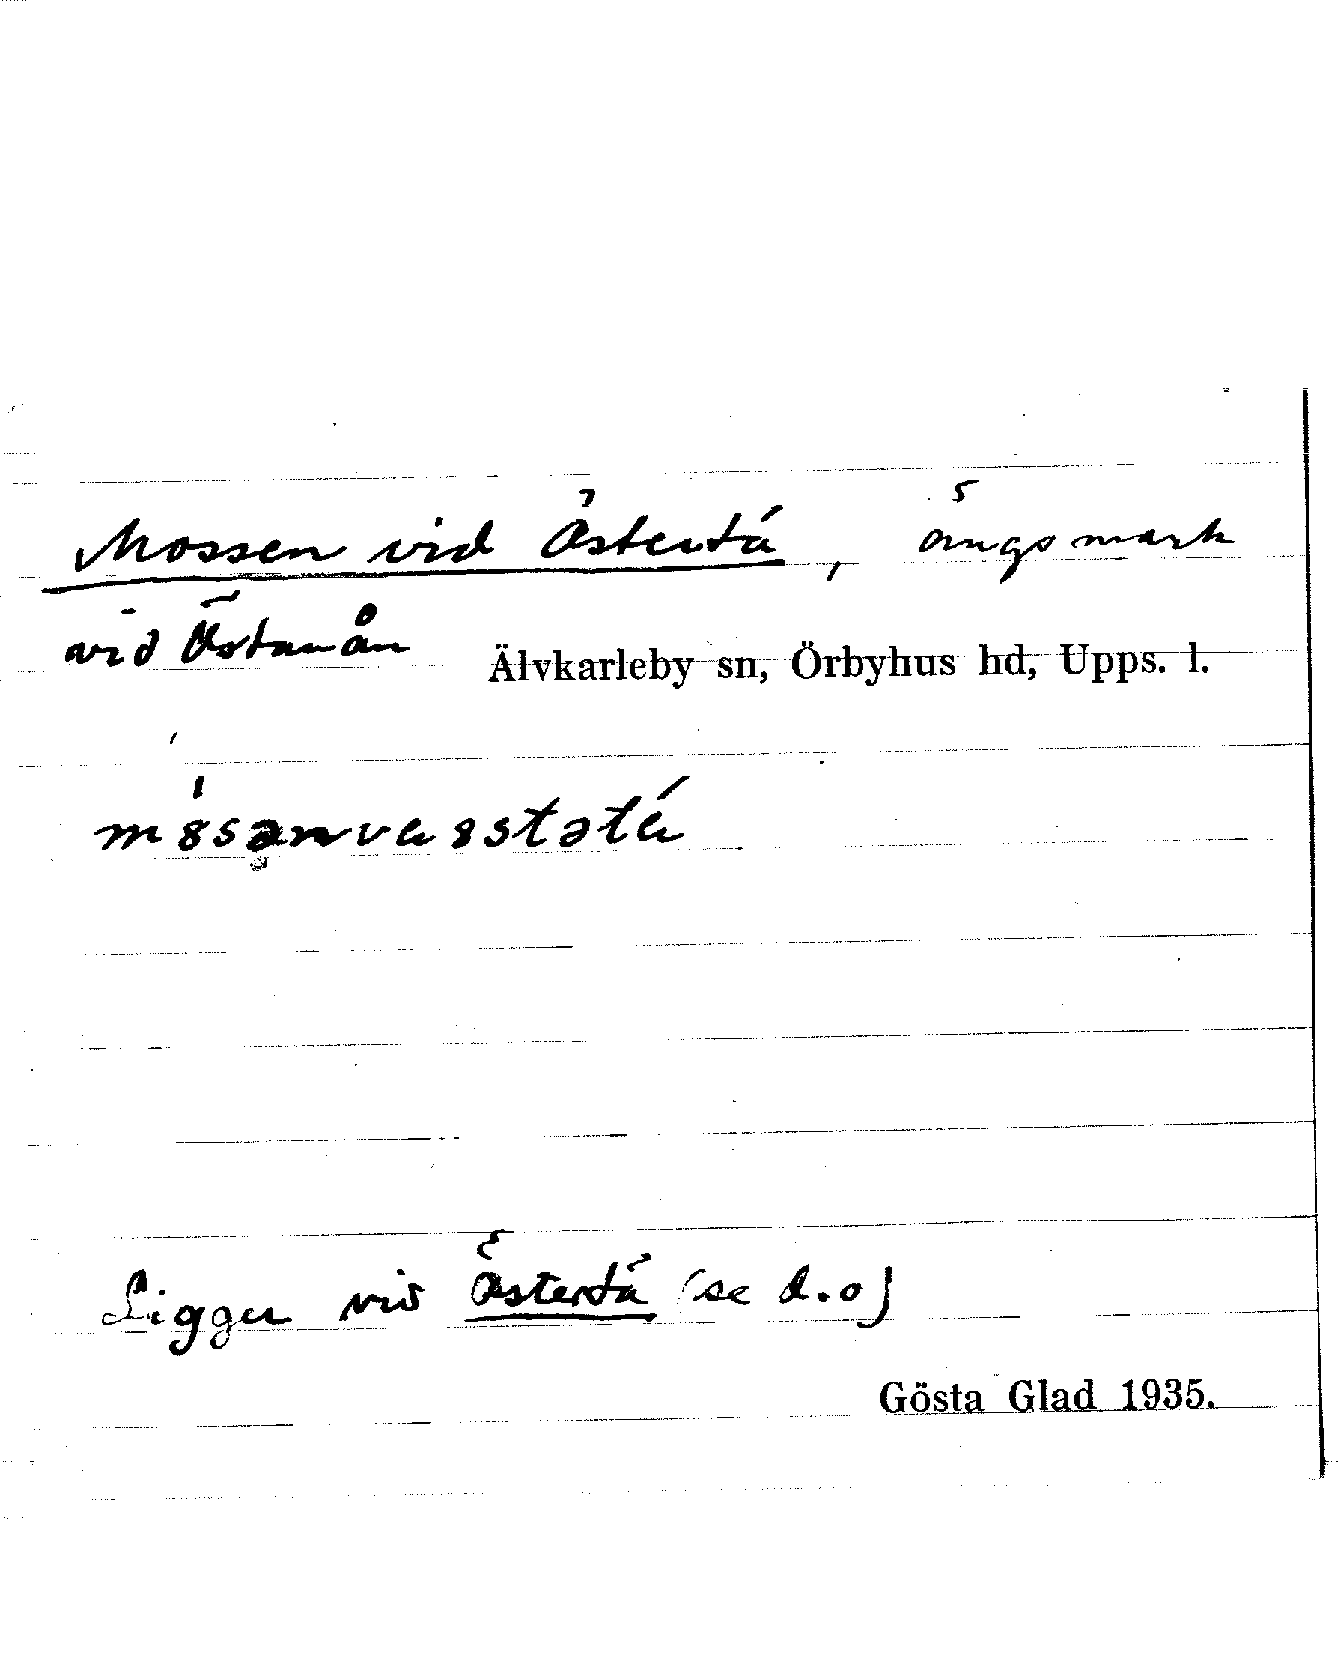 Mossen vid Östertå, ängsmark
vid Östanån Älvkarleby sn, Örbyhus hd, Upps. l.
Ligger vid Östertå (se d.o)
Gösta Glad 1935.